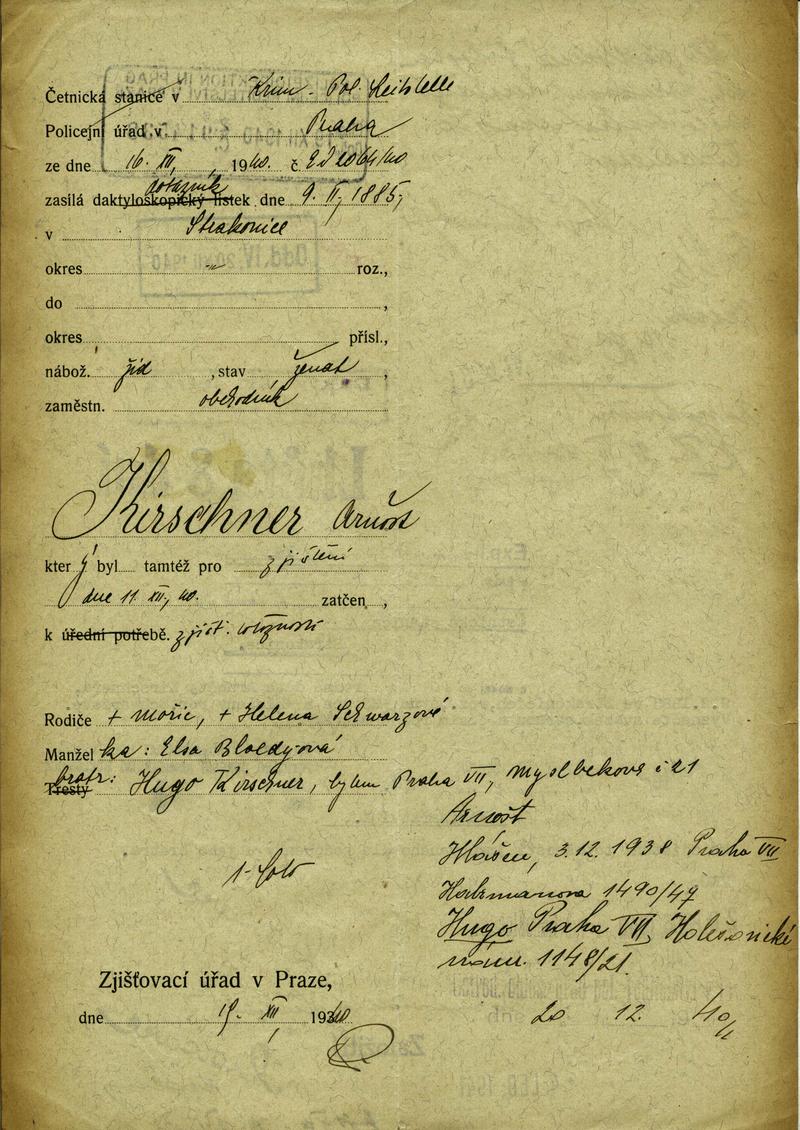 Četnická stanice v Krim.-Pol. Leitstelle
Policejní úřad v Praha
ze dne 16. XII, 1940. č. 2J2064/40
dotazník
zasílá daktyloskopický lístek dne 9. II, 1885,
v Strakonice
okres -"- roz.,
do ,
okres přísl.,
nábož. žid , stav ženat ,
zaměstn. obchodník
Kirschner Arnošt
který byl tamtéž pro zjištění
dne 11. XII, 40. zatčen ,
k úřední potřebě. zjišť. totožnosti
Rodiče + Mořic, + Helena Schwarzové
Manžel ka: Elsa Bloedyová
bratr:
Tresty Hugo Kirschner, bytem Praha VII, Myslbekova č 21
Arnošt
Hlášen, 3.12. 1938 Praha VII
Habrmanova 1490/47
1 foto
Hugo Praha VII, Holešovické
nám. 1148/21.
Zjišťovací úřad v Praze,
dne 19. XII, 1940
20 12. 40